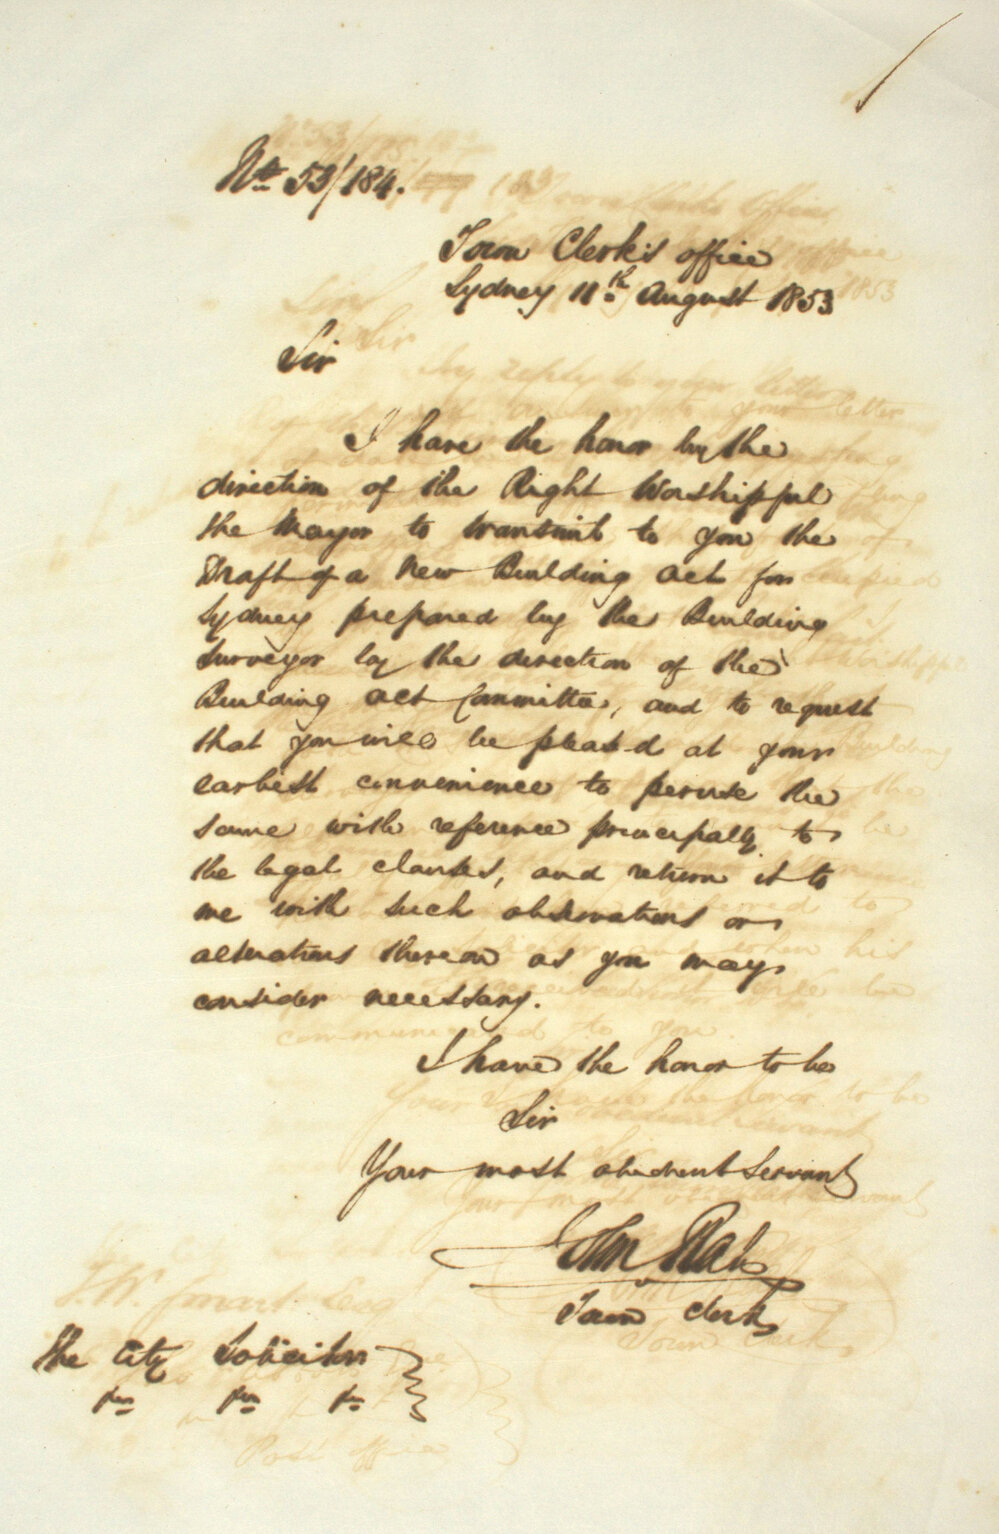 No 53/184.
Town Clerk's office
Sydney 11th August 1853
Sir
I have the honor by the
direction of the Right Worshipful
the Mayor to transmit to you the
Draft of a New Building Act for
Sydney prepared by the Building
Surveyor by the direction of the
Building Act Committee, and to request
that you will be pleased at your
earliest convenience to peruse the
same with reference principally to
the legal clauses, and return it to
me with such observations or
alterations thereon as you may
consider necessary.
I have the honor to be
Sir
Your most obedient Servant
John Rae
Town Clerk
The City Solicitor